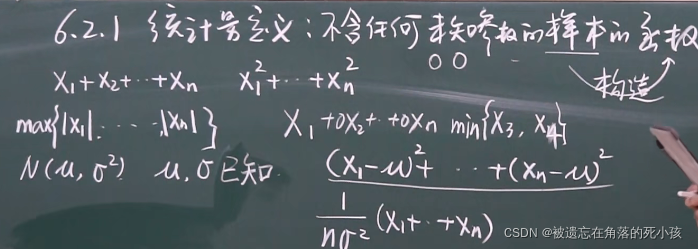 6.2.1 统计量定义:不含任何未知参数的样本的函数
构造
X₁+X₂+···+Xₙ  X₁²+···+Xₙ²
max{|X₁|,······,|Xₙ|}  X₁+0X₂+··+0Xₙ  min{X₃, X₄}
N(μ,σ²)  μ,σ已知.  (X₁-μ)²+ ··· +(Xₙ-μ)²
1/(nσ²) (X₁+··+Xₙ)
CSDN @被遗忘在角落的死小孩